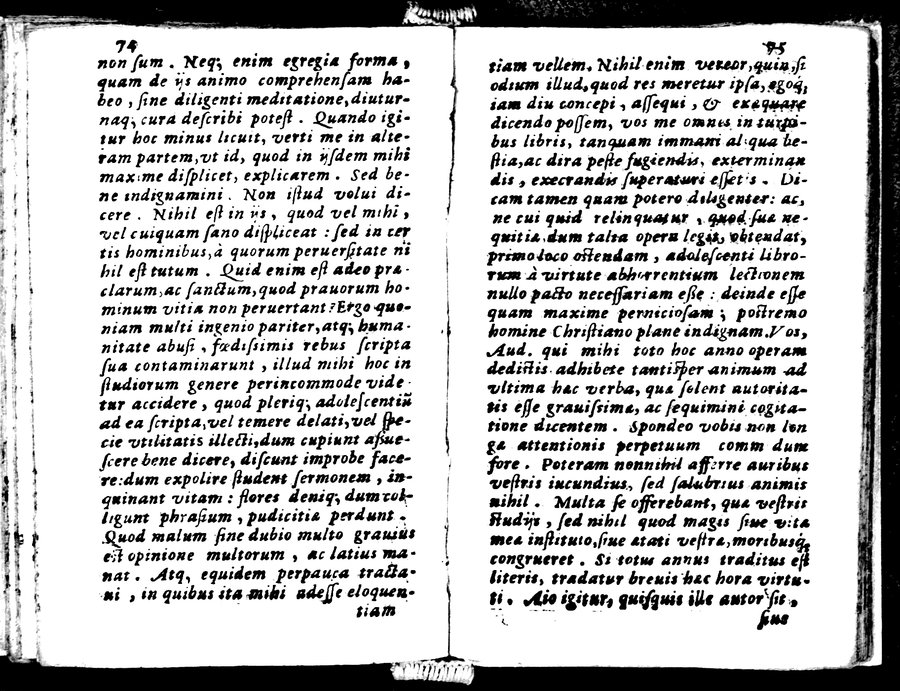 74
non ſum . Neq; enim egregia forma ,
quam de ijs animo comprehenſam ha-
beo , ſine diligenti meditatione, diutur-
naq; cura deſcribi poteſt . Quando igi-
tur hoc minus licuit, verti me in alte-
ram partem, vt id, quod in ijſdem mihi
maxime diſplicet, explicarem . Sed be-
ne indignamini . Non iſtud volui di-
cere . Nihil eſt in ijs , quod vel mihi ,
vel cuiquam ſano diſpliceat : ſed in cer
tis hominibus, à quorum peruerſitate ni
hil eſt tutum . Quid enim eſt adeo præ-
clarum, ac ſanctum, quod prauorum ho-
minum vitia non peruertant ? Ergo quo-
niam multi ingenio pariter, atq; huma-
nitate abuſi , fœdiſſimis rebus ſcripta
ſua contaminarunt , illud mihi hoc in
ſtudiorum genere perincommode vide-
tur accidere , quod pleriq; adoleſcentiū
ad ea ſcripta, vel temere delati, vel ſpe-
cie vtilitatis illecti, dum cupiunt aſſue-
ſcere bene dicere, diſcunt improbe face-
re: dum expolire ſtudent ſermonem , in-
quinant vitam : flores deniq; dum col-
ligunt phraſium , pudicitiæ perdunt .
Quod malum ſine dubio multo grauius
eſt opinione multorum , ac latius ma-
nat . Atq; equidem perpauca tracta-
ui , in quibus ita mihi adeſſe eloquen-
tiam
75
tiam vellem. Nihil enim vereor, quin, ſi
odium illud, quod res meretur ipſa, egoq;
iam diu concepi , aſſequi , & exæquare
dicendo poſſem, vos me omnes in turpi-
bus libris, tanquam immani aliqua be-
ſtia, ac dira peſte fugiendis, exterminan
dis , execrandis ſuperaturi eſſetis . Di-
cam tamen quam potero diligenter: ac,
ne cui quid relinquatur , quod ſuæ ne-
quitiæ, dum talia opera legit, obtendat,
primo loco oſtendam , adoleſcenti libro-
rum à virtute abhorrentium lectionem
nullo pacto neceſſariam eſſe : deinde eſſe
quam maxime pernicioſam ; poſtremo
homine Chriſtiano plane indignam. Vos,
Aud. qui mihi toto hoc anno operam
dediſtis adhibete tantiſper animum ad
vltima hæc verba, quæ ſolent autorita-
tis eſſe grauiſſima, ac ſequimini cogita-
tione dicentem . Spondeo vobis non lon
gæ attentionis perpetuum comm dum
fore . Poteram nonnihil afferre auribus
veſtris iucundius, ſed ſalubrius animis
nihil . Multa ſe offerebant, quæ veſtris
ſtudijs , ſed nihil quod magis ſiue vitæ
meæ inſtituto, ſiue ætati veſtræ, moribusq;
congrueret . Si totus annus traditus eſt
literis, tradatur breuis hæc hora virtu-
ti . Aio igitur, quiſquis ille autor ſit ,
ſiue